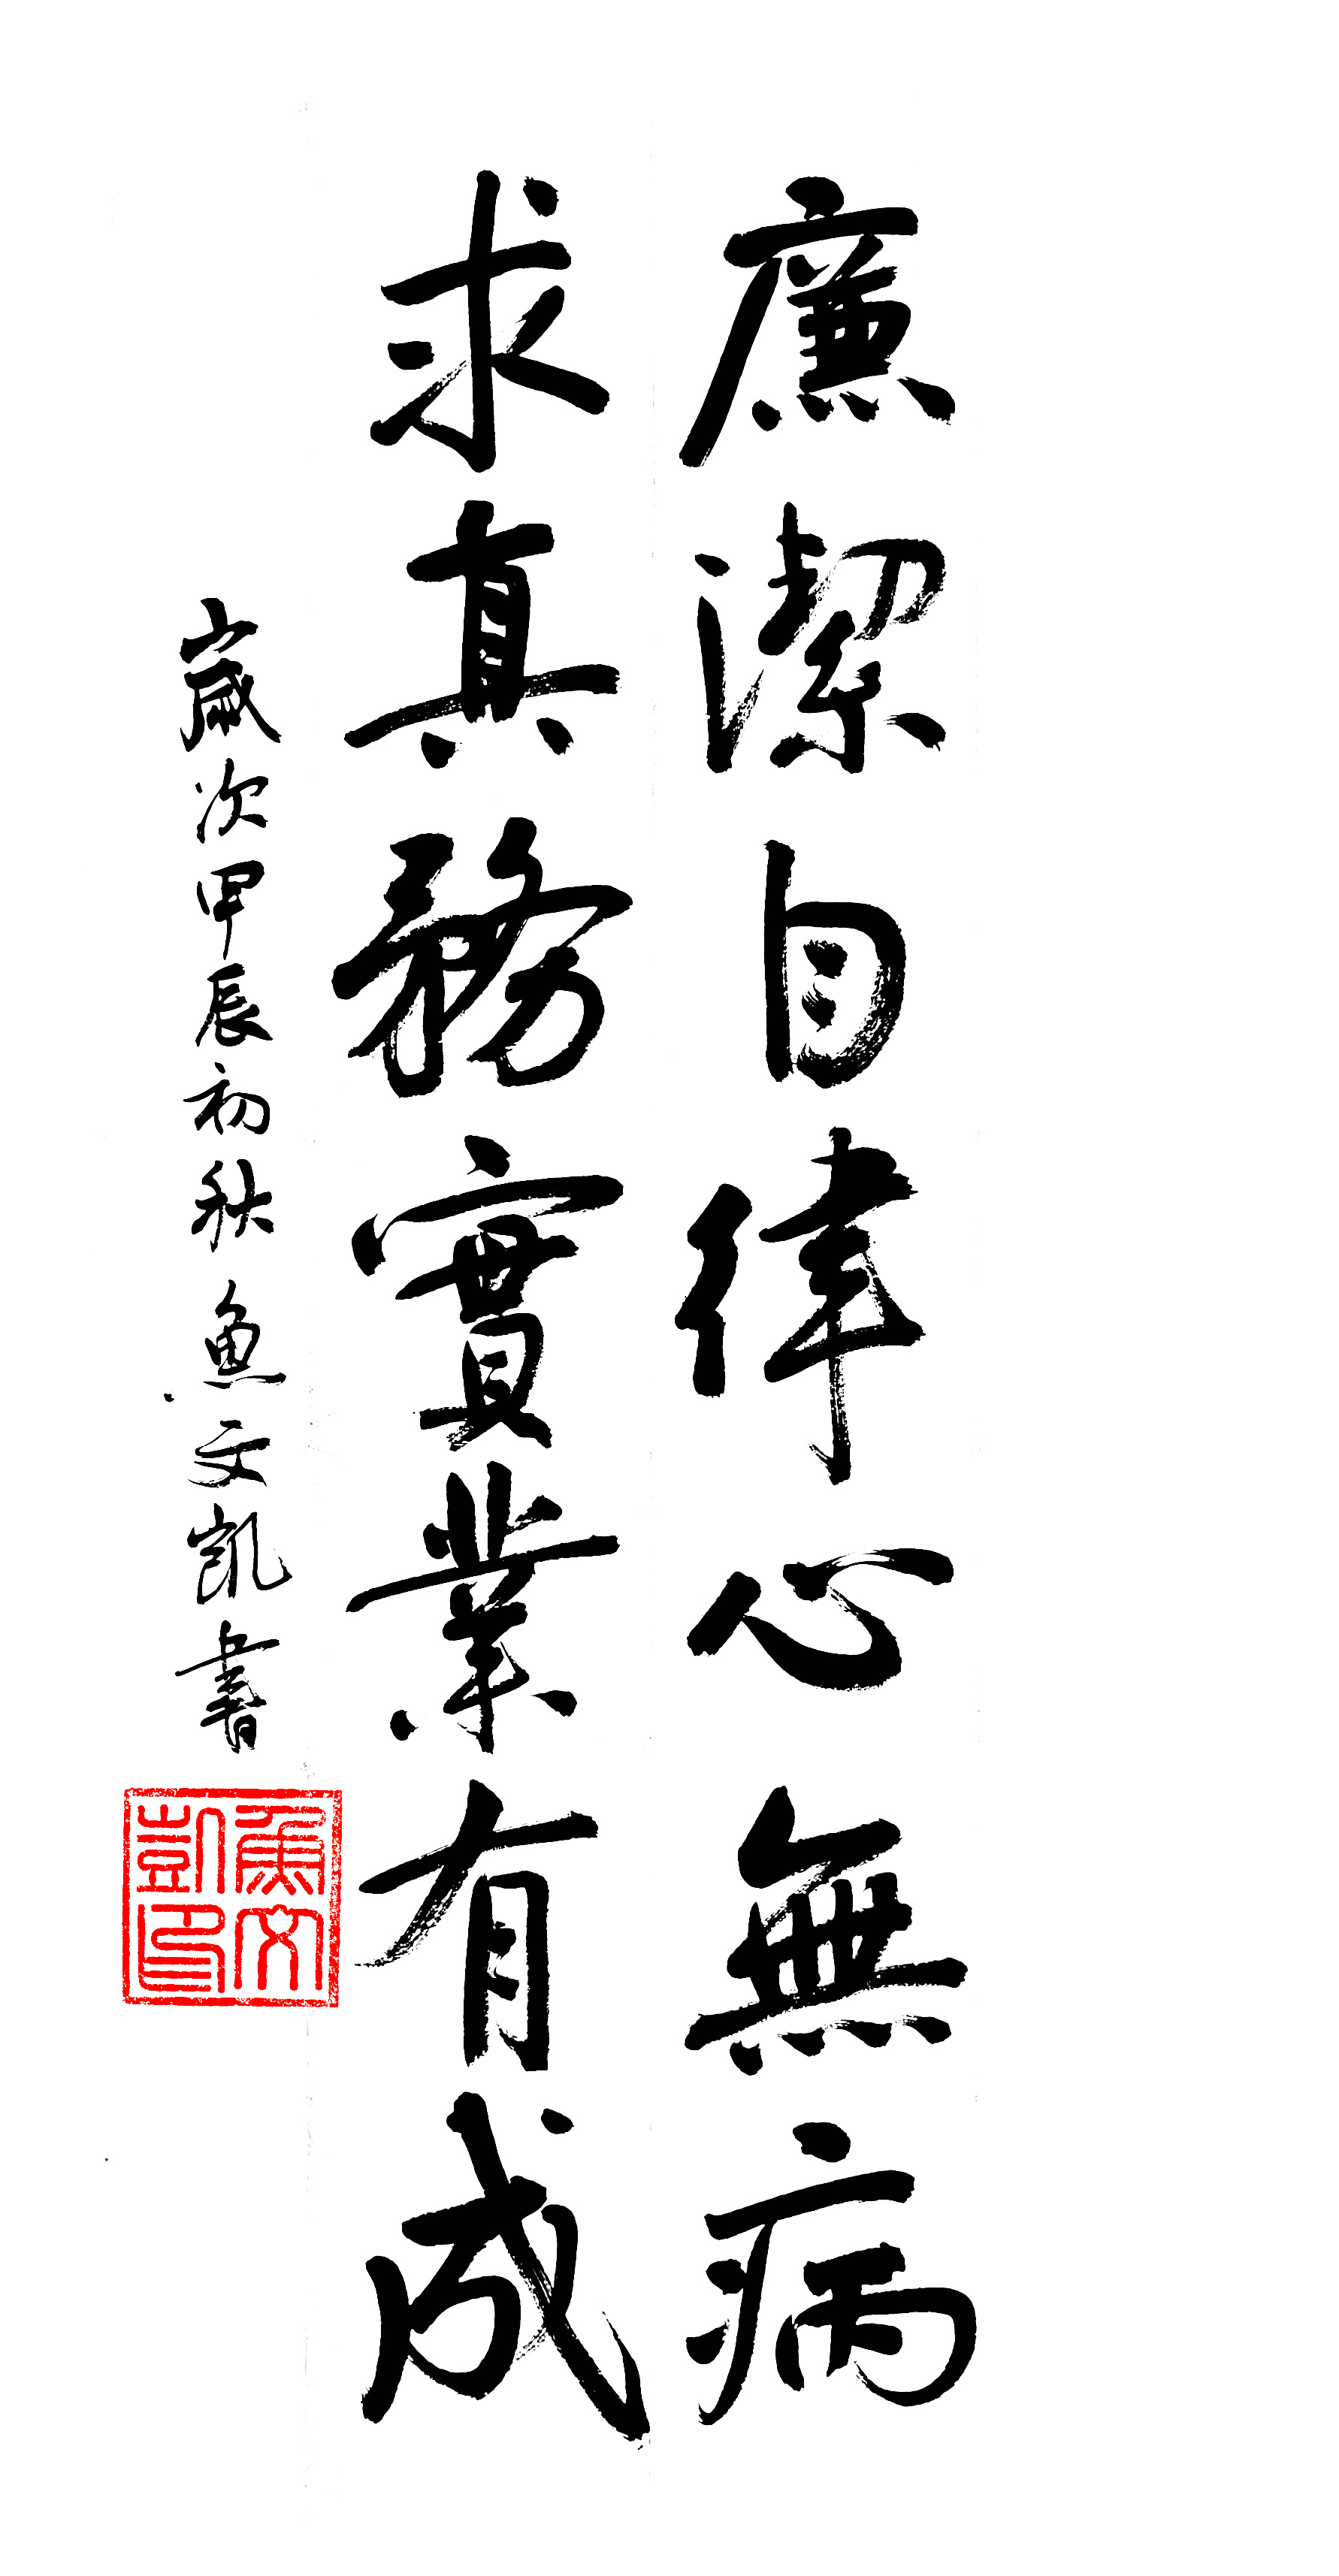 廉潔自律心無病
求真務實業有成
歲次甲辰初秋 魚文凱書
魚文凱印